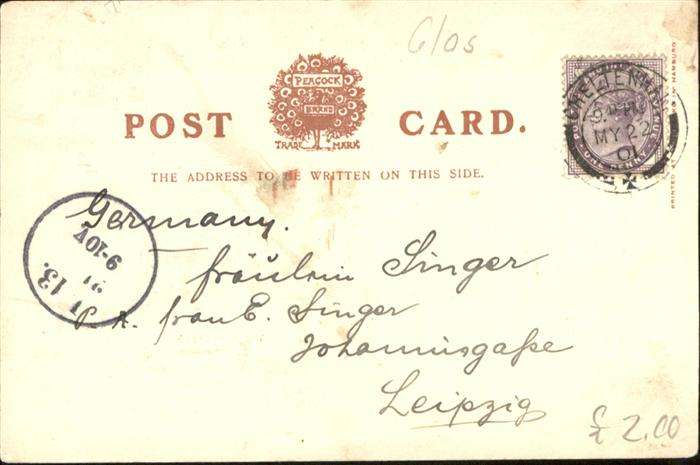 6/05
PEACOCK
BRAND
TRADE MARK
POST CARD.
THE ADDRESS TO BE WRITTEN ON THIS SIDE.
CHELTENH
MY 22
01
PRINTED
HAMBURG
Germany.
13.
9-10V
Fräulein Singer
p. A. Frau E. Singer
Johannisgaße
Leipzig
£ 2.00